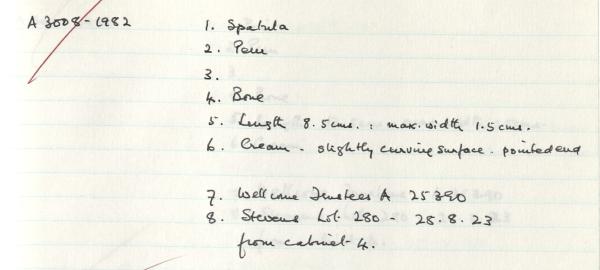 A 3008-1982
1. Spatula
2. Peru
3.
4. Bone
5. Length 8.5cms. : max. width 1.5cms.
6. Cream. slightly curving surface. pointed end
7. Wellcome Trustees A 25890
8. Stevens Lot 280 - 28.8.23
from cabinet 4.